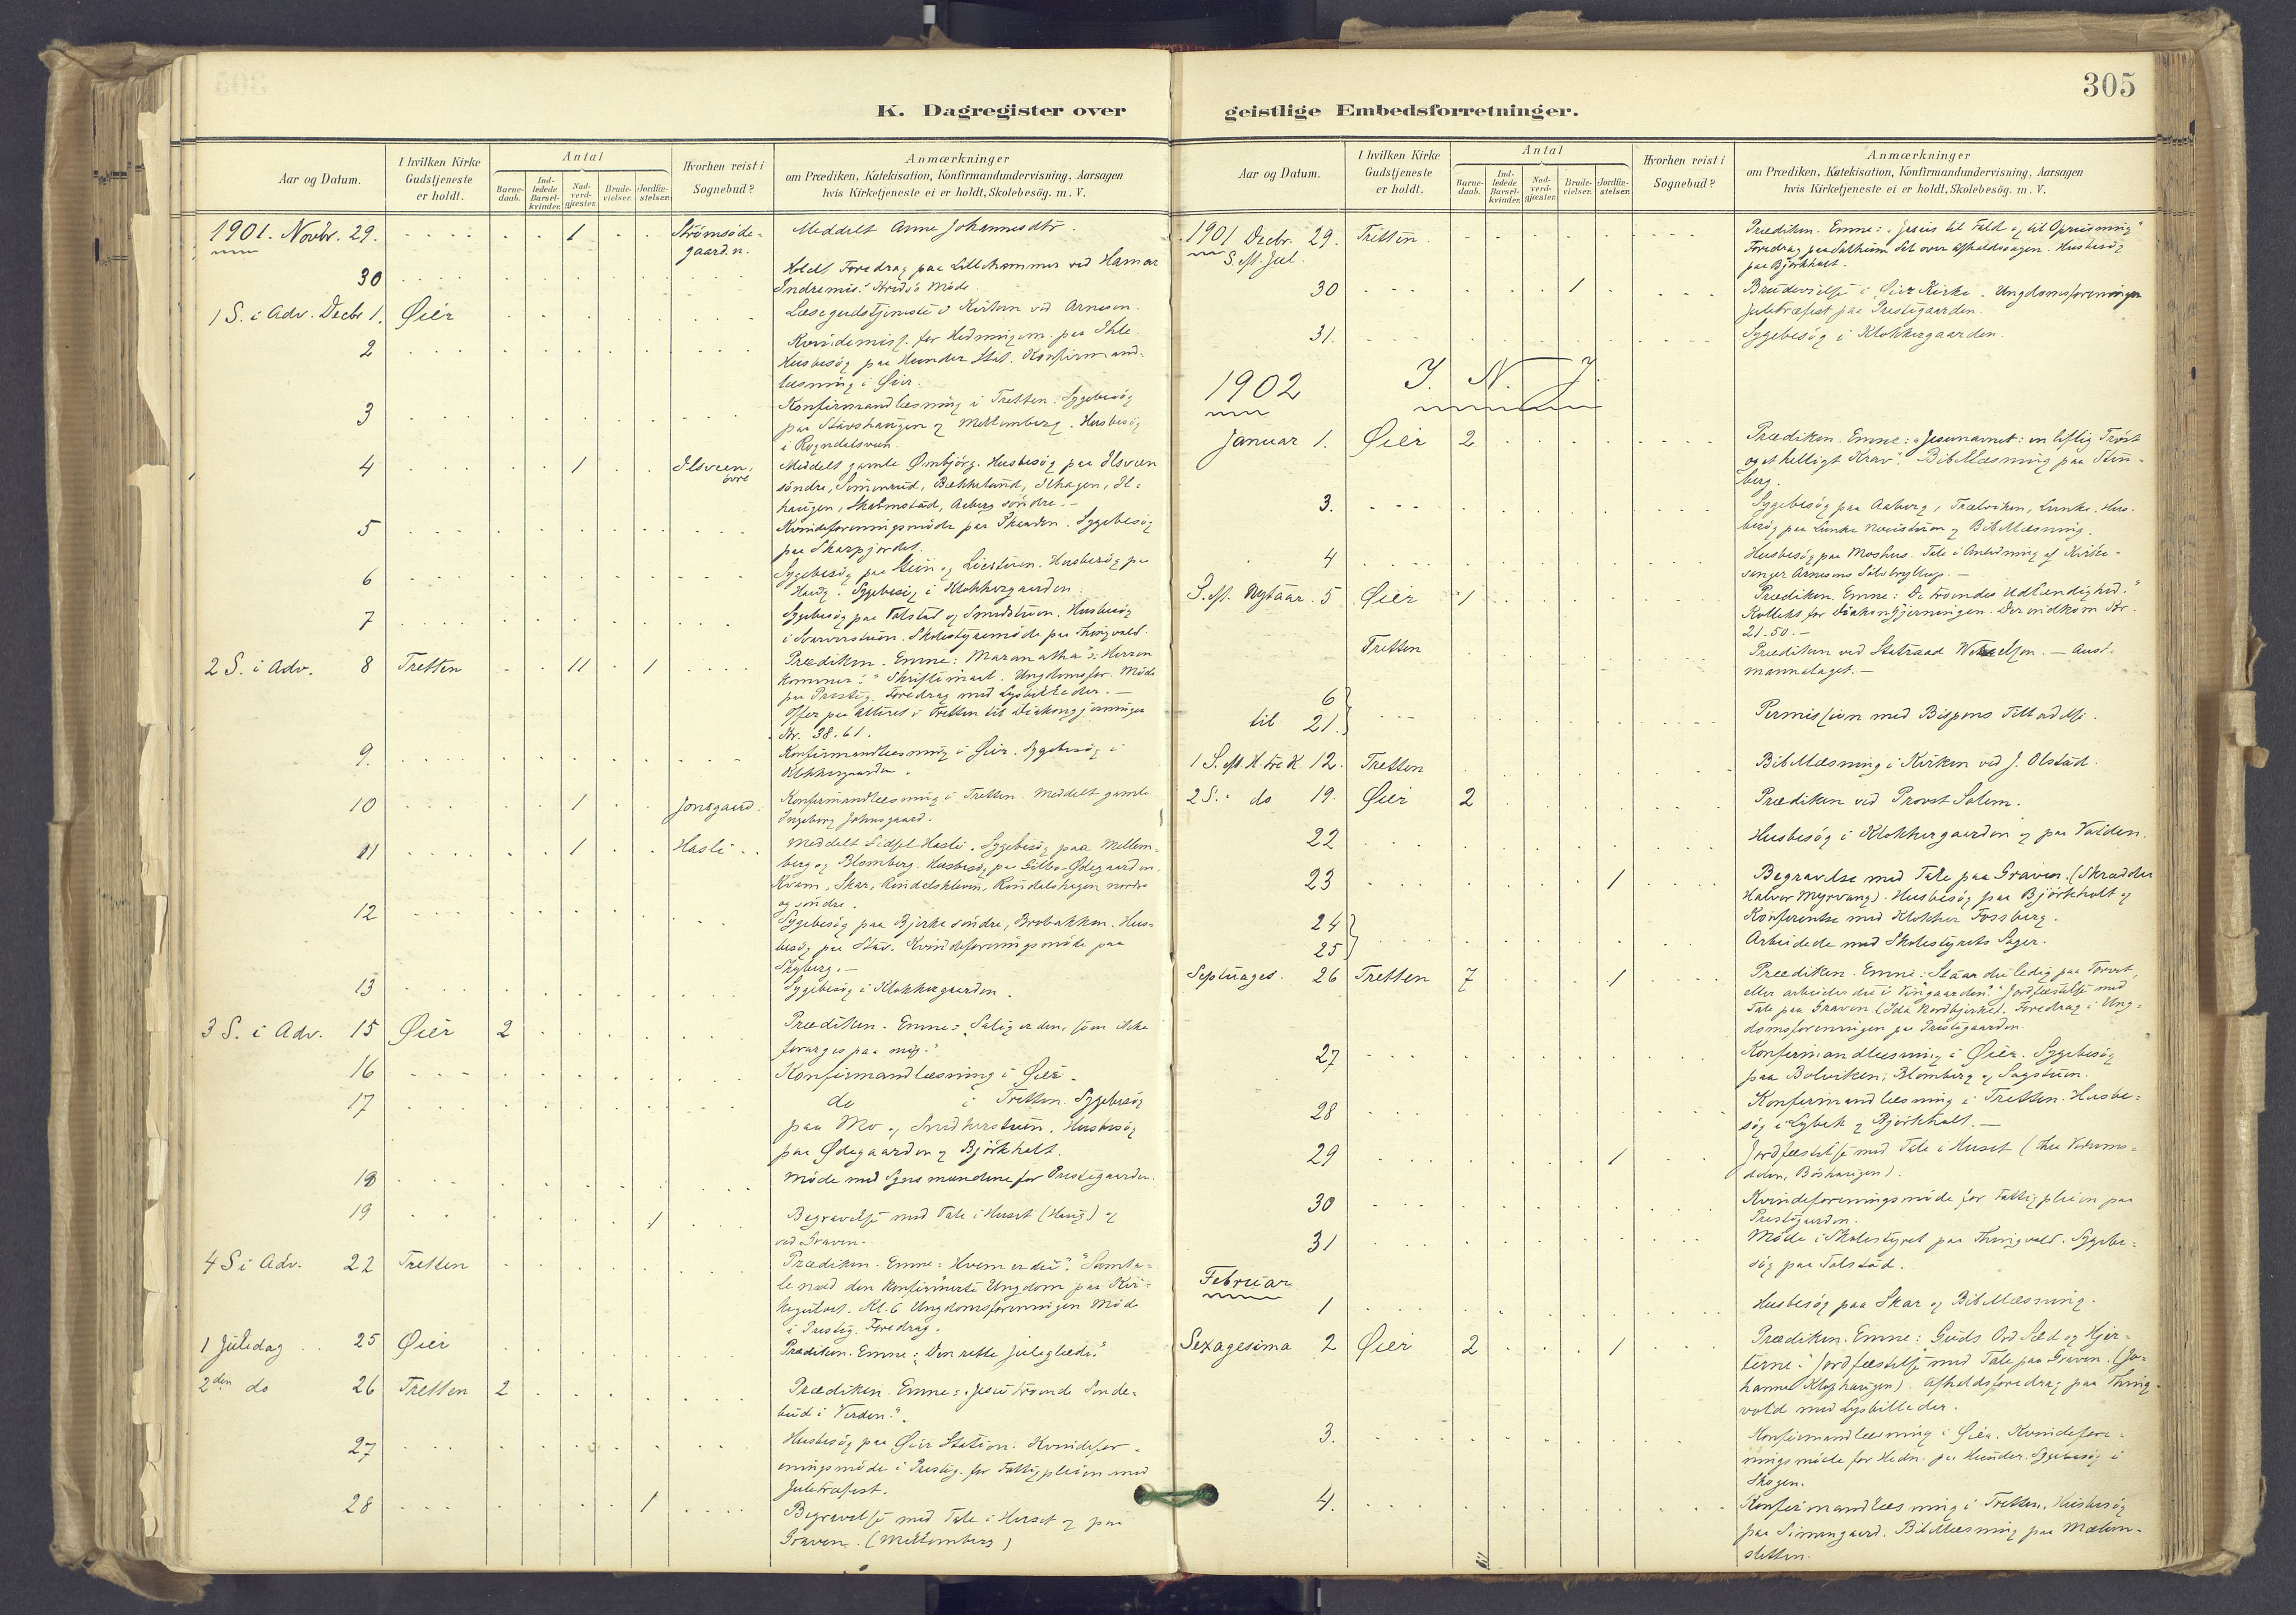 305
K. Dagregister over
Aar og Datum.
I hvilken Kirke Gudstjeneste er holdt.
Antal
Barnedaab.
Indledede Barselkvinder.
Nadverdgjæster.
Brudevielser.
Jordfæstelser.
Hvorhen reist i Sognebud?
Anmærkninger
om Prædiken, Katekisation, Konfirmandundervisning, Aarsagen
hvis Kirketjeneste ei er holdt, Skolebesög. m. V.
1901. Novbr. 29. 1 Strömsöde= Meddelt Anne Johannesdtr.
gaard. n.
30 Holdt Foredrag paa Lillehammer ved Hamar
Indremis.s Kreds's Möde.
1 S. i Adv. Decbr 1. Øier Læsegudstjeneste i Kirken ved Arnesen.
2 Kvindemisf. for Hedningem. paa Ihle.
Husbesög paa Hunder Stat. Konfirmand=
læsning i Øier.
3 Konfirmandlæsning i Tretten. Sygebesög
paa Stavshaugen og Mellemberg. Husbesög
i Rogndalsveen.
4 1 Ilsveen, Meddelt gamle Ømbjörg. Husbesög paa Ilsveen
övre söndre, Simenrud, Bækkelund, Ilhagen, Il=
haugen, Skalmstad, Aaberg söndre. -
5 Kvindeforeningsmöde paa Skaaden. Sygebesög
paa Skarpjordet.
6 Sygebesög paa Stein og Liestuen. Husbesög paa
Haug. Sygebesög i Klokkergaarden.
7 Sygebesög paa Tolstad og Smedstuen. Husbesög
i Svarverstuen. Skolestyremöde paa Thingvold.
2 S. i Adv. 8 Tretten 11 1 Prædiken. Emne: "Maranatha": Herren
kommer." Skriftemaal. Ungdomsfor. Möde
paa Presteg. Foredrag med Lysbilleder. -
Offer paa Alteret i Tretten til Diakongjerningen
Kr. 38.61.
9. Konfirmandlæsning i Øier. Sygebesög i
Klokkergaarden.
10 1 Jonsgaard. Konfirmandlæsning i Tretten. Meddelt gamle
Ingeborg Johnsgaard.
11 1 Hasli Meddelt Sidsel Hasli. Sygebesög paa Mellem=
berg og Blomberg. Husbesög paa Gillebo-Ødegaarden,
Kvam, Skar, Rindalshagen nordre
og söndre.
12 Sygebesög paa Bjerke söndre, Brobakken. Hus=
besög paa Stav. Kvindeforeningsmöde paa
Skyberg. -
13 Sygebesög i Klokkergaarden.
3 S. i Adv. 15 Øier 2 Prædiken. Emne: "Salig er den, som ikke
forarges paa mig."
16 Konfirmandlæsning i Øier.
17 do i Tretten. Sygebesög
paa Mo og Snedkerstuen. Husbesög
paa Ødegaarden og Björkholt.
18 Möde med Syns mændene for Prestegaarden.
19 1 Begravelse med Tale i Huset (Haug) og
ved Graven.
4 S i Adv. 22 Tretten Prædiken. Emne: "Hvem er du?" Samta=
le med den konfirmerte Ungdom paa Kir=
kegulvet. Kl. 6 Ungdomsforeningen Möde
i Presteg. Foredrag.
1 Juledag 25 Øier Prædiken. Emne: "Den rette juleglæde."
2den do 26 Tretten 2 Prædiken. Emne: "Jesu troende Sende=
bud i Verden."
27 Husbesög paa Øier Station. Kvindefor=
eningsmöde i Presteg. for Fattigpleien med
Juletræfest.
28 1 Begravelse med Tale i Huset og paa
Graven. (Mellemberg)
geistlige Embedsforretninger.
Aar og Datum.
I hvilken Kirke Gudstjeneste er holdt.
Antal
Barnedaab.
Indledede Barselkvinder.
Nadverdgjæster.
Brudevielser.
Jordfæstelser.
Hvorhen reist i Sognebud?
Anmærkninger
om Prædiken, Katekisation, Konfirmandundervisning, Aarsagen
hvis Kirketjeneste ei er holdt, Skolebesög. m. V.
1901 Decbr. 29. Tretten Prædiken. Emne: "Jesus til Fald og til Opreisning"
S. ef. Jul. Foredrag paa Solheim Sal over Afholdssagen. Husbesög
paa Björkholt.
30 1 Brudevielse i Øier Kirke. Ungdomsforeningen
juletræfest paa Prestegaarden.
31. Sygebesög i Klokkergaarden.
1902 I. N. J.
Januar 1. Øier 2 Prædiken. Emne: "Jesunavnet: en liflig Tröst
og et helligt Krav." Bibellæsning paa Sten=
berg.
3. Sygebesög paa Aaberg, Trælviken, Lunke. Hus=
besög paa Lunke og Bibellæsning.
4 Husbesög paa Moshus. Tale i Anledning af Kirke=
sanger Arnesens Sölvbryllup. -
S. ef. Nytaar. 5 Øier 1 Prædiken. Emne: "De troendes Udlændighed."
Kollekt for Diakongjerningen. Der indkom Kr.
21.50. -
Tretten Prædiken ved Statsraad Wexelsen. - Aust=
mannalaget. -
6
til 21. Permission med Bispens Tilladelse.
1 S. ef. H. tre K 12. Tretten Bibellæsning i Kirken ved J. Olstad.
2 S. " do 19. Øier 2 Prædiken ved Provst Solem.
22 Husbesög i Klokkergaarden og paa Volden.
23 1 Begravelse med Tale paa Graven. (Skrædder
Halvor Myrvang). Husbesög paa Björkholt og
Konferentse med Klokker Fossberg.
24
25 Arbeidede med Skolestyrets Sager.
Septuages. 26 Tretten 7 1 Prædiken. Emne: "Staar du ledig paa Torvet,
eller arbeider du i Vingaarden?" Jordfæstelse med
Tale paa Graven (Ida Nordbjerke). Foredrag i Ung=
domsforeningen paa Prestegaarden.
27 Konfirmandlæsning i Øier. Sygebesög
paa Bolviken, Blomberg og Sagstuen.
28 Konfirmandlæsning i Tretten. Husbe=
sög i Lybek og Björkholt. -
29 1 Jordfæstelse med Tale i Huset (
).
30 Kvindeforeningsmöde for Fattigpleien paa
Prestegaarden.
31 Möde i Skolestyret paa Thingvold. Sygebe=
sög paa Tolstad.
Februar
1 Husbesög paa Skar og Bibellæsning.
Sexagesima 2 Øier 2 1 Prædiken. Emne: "Guds Ord Sæd og Hjer=
terne." Jordfæstelse med Tale paa Graven. (Jo=
hanne Klophaugen). Afholdsforedrag paa Thing=
vold med Lysbilleder.
3. Konfirmandlæsning i Øier. Kvindefore=
ningsmöte for Hedn. paa Hunder. Sygebesög i
Skogen.
4. Konfirmandlæsning i Tretten. Husbesög
paa Simengaard. Bibellæsning paa Mælum=
sletten.